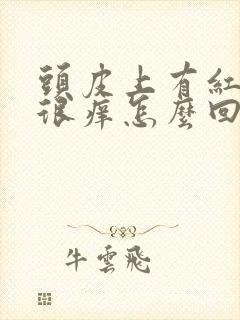 頭皮上有紅
很痒怎麼回
牛雲飛